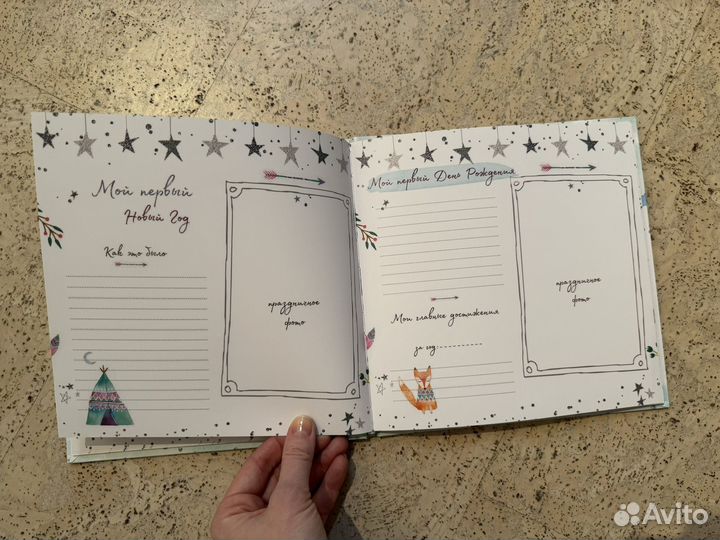 Мой первый
Новый Год
Как это было
праздничное
фото
Мой первый День Рождения
Мои главные достижения
за год:
праздничное
фото
Avito